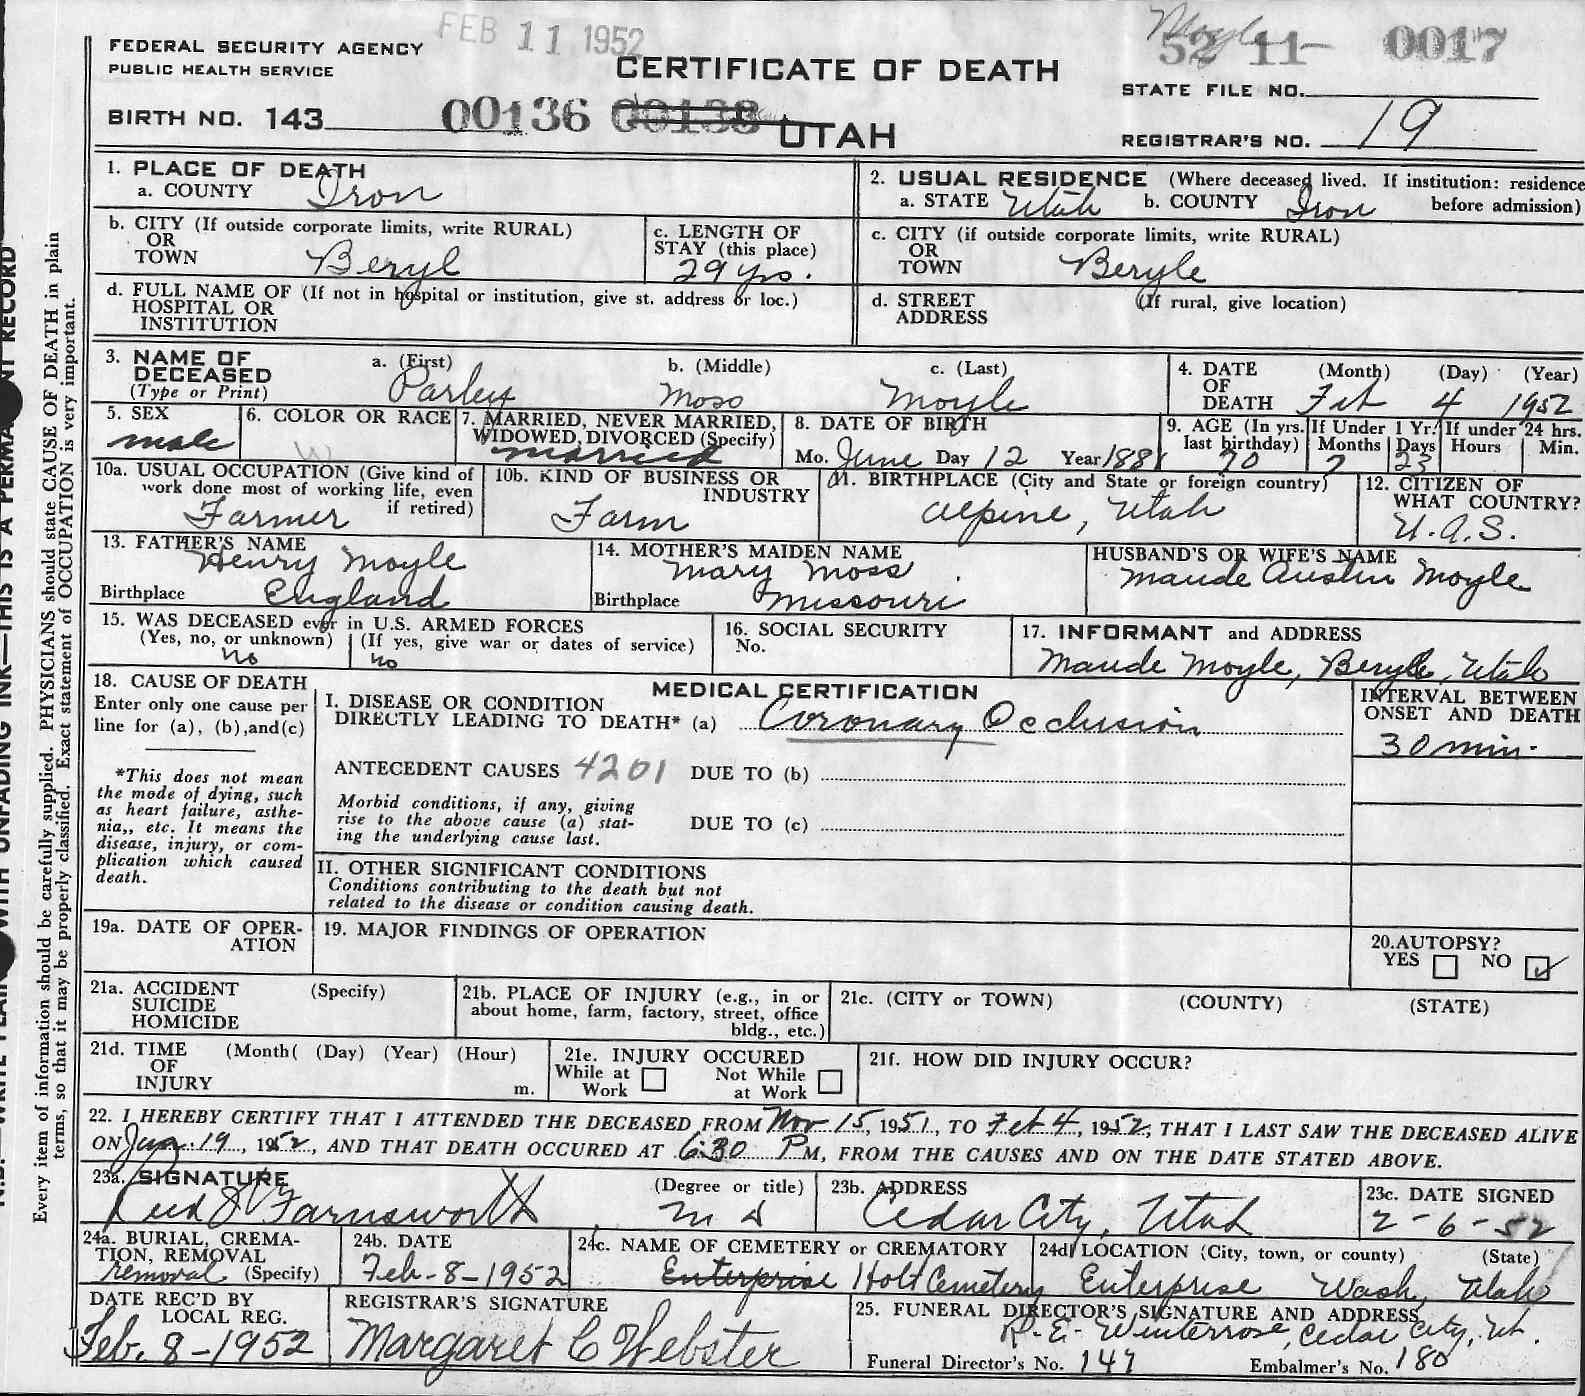 FEB 11 1952
Moyle
52 11 0017
FEDERAL SECURITY AGENCY
PUBLIC HEALTH SERVICE
CERTIFICATE OF DEATH
STATE FILE NO.
BIRTH NO. 143 00136 00138 UTAH
REGISTRAR'S NO. 19
1. PLACE OF DEATH
a. COUNTY Iron
2. USUAL RESIDENCE (Where deceased lived. If institution: residence
a. STATE Utah b. COUNTY Iron before admission)
b. CITY (If outside corporate limits, write RURAL)
OR
TOWN Beryl
c. LENGTH OF
STAY (this place)
29 yrs.
c. CITY (if outside corporate limits, write RURAL)
OR
TOWN Beryle
d. FULL NAME OF (If not in hospital or institution, give st. address or loc.)
HOSPITAL OR
INSTITUTION
d. STREET (If rural, give location)
ADDRESS
3. NAME OF
DECEASED
(Type or Print)
a. (First) b. (Middle) c. (Last)
Parley Moss Moyle
4. DATE (Month) (Day) (Year)
OF
DEATH Feb 4 1952
5. SEX
male
6. COLOR OR RACE
W
7. MARRIED, NEVER MARRIED,
WIDOWED, DIVORCED (Specify)
married
8. DATE OF BIRTH
Mo. June Day 12 Year 1881
9. AGE (In yrs.
last birthday)
70
If Under 1 Yr.
Months Days
7 23
If under 24 hrs.
Hours Min.
10a. USUAL OCCUPATION (Give kind of
work done most of working life, even
if retired)
Farmer
10b. KIND OF BUSINESS OR
INDUSTRY
Farm
11. BIRTHPLACE (City and State or foreign country)
Alpine, Utah
12. CITIZEN OF
WHAT COUNTRY?
U.A.S.
13. FATHER'S NAME
Henry Moyle
Birthplace England
14. MOTHER'S MAIDEN NAME
Mary Moss
Birthplace Missouri
HUSBAND'S OR WIFE'S NAME
Maude Austin Moyle
15. WAS DECEASED ever in U.S. ARMED FORCES
(Yes, no, or unknown) (If yes, give war or dates of service)
no no
16. SOCIAL SECURITY
No.
17. INFORMANT and ADDRESS
Maude Moyle, Beryle, Utah
18. CAUSE OF DEATH
Enter only one cause per
line for (a), (b),and(c)
*This does not mean
the mode of dying, such
as heart failure, asthe-
nia,, etc. It means the
disease, injury, or com-
plication which caused
death.
MEDICAL CERTIFICATION
I. DISEASE OR CONDITION
DIRECTLY LEADING TO DEATH* (a) Coronary Occlusion
INTERVAL BETWEEN
ONSET AND DEATH
30 min.
ANTECEDENT CAUSES 4201 DUE TO (b)
Morbid conditions, if any, giving
rise to the above cause (a) stat-
ing the underlying cause last.
DUE TO (c)
II. OTHER SIGNIFICANT CONDITIONS
Conditions contributing to the death but not
related to the disease or condition causing death.
19a. DATE OF OPER-
ATION
19. MAJOR FINDINGS OF OPERATION
20. AUTOPSY?
YES NO ✓
21a. ACCIDENT (Specify)
SUICIDE
HOMICIDE
21b. PLACE OF INJURY (e.g., in or
about home, farm, factory, street, office
bldg., etc.)
21c. (CITY or TOWN) (COUNTY) (STATE)
21d. TIME (Month( (Day) (Year) (Hour)
OF
INJURY m.
21e. INJURY OCCURED
While at Not While
Work at Work
21f. HOW DID INJURY OCCUR?
22. I HEREBY CERTIFY THAT I ATTENDED THE DECEASED FROM Nov 15, 1951, TO Feb 4, 1952, THAT I LAST SAW THE DECEASED ALIVE
ON Jan. 19, 1952, AND THAT DEATH OCCURED AT 6:30 P M, FROM THE CAUSES AND ON THE DATE STATED ABOVE.
23a. SIGNATURE (Degree or title)
Reed Farnsworth M D
23b. ADDRESS
Cedar City, Utah
23c. DATE SIGNED
2-6-52
24a. BURIAL, CREMA-
TION, REMOVAL
removal (Specify)
24b. DATE
Feb-8-1952
24c. NAME OF CEMETERY or CREMATORY
Enterprise Holt Cemetery
24d LOCATION (City, town, or county) (State)
Enterprise Wash, Utah
DATE REC'D BY
LOCAL REG.
Feb. 8-1952
REGISTRAR'S SIGNATURE
Margaret C Webster
25. FUNERAL DIRECTOR'S SIGNATURE AND ADDRESS
R. E. Winterrose, Cedar City, Ut.
Funeral Director's No. 147 Embalmer's No. 180
Every item of information should be carefully supplied. PHYSICIANS should state CAUSE OF DEATH in plain
terms, so that it may be properly classified. Exact statement of OCCUPATION is very important.
WITH UNFADING INK—THIS IS A
RECORD